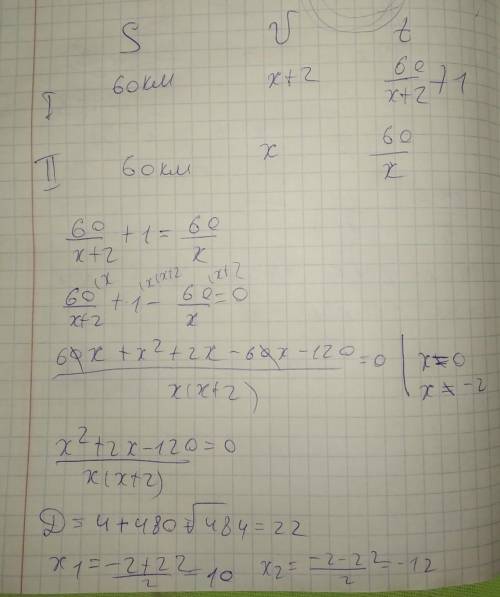 S V t
I 60 км x+2 60/(x+2) + 1
II 60 км x 60/x
60/(x+2) + 1 = 60/x
60/(x+2) (x + 1 (x(x+2 - 60/x (x+2 = 0
(60x + x² + 2x - 60x - 120)/(x(x+2)) = 0 | x ≠ 0
x ≠ -2
(x² + 2x - 120)/(x(x+2)) = 0
D = 4 + 480 = √484 = 22
x1 = (-2+22)/2 = 10 x2 = (-2-22)/2 = -12